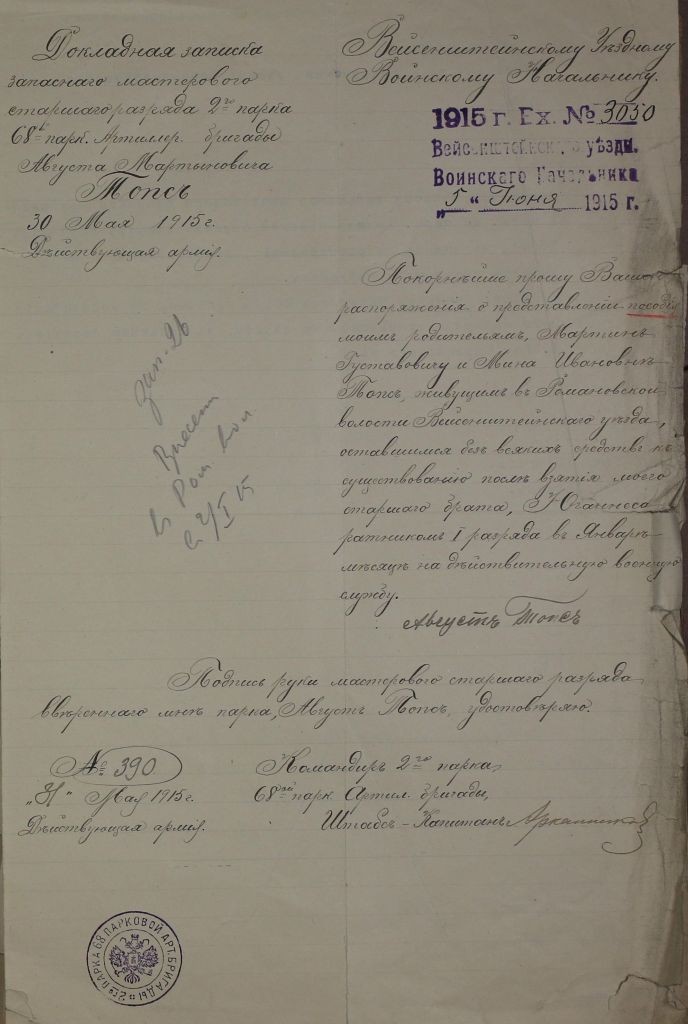 Докладная записка
запаснаго мастерового
старшаго разряда 2го парка
68ой парк. Артиллер. бригады
Августа Мартыновича
Топсъ
30 Мая 1915 г.
Дѣйствующая армія.
Вейсенштейнскому Уѣздному
Воинскому Начальнику.
1915 г. Вх. № 3050
Вейсенштейнскаго уѣздн.
Воинскаго Начальника
„5“ Іюня 1915 г.
Покорнѣйше прошу Ваше
распоряженія о представленіи пособія
моимъ родительямъ, Мартинъ
Густавовичу и Мина Ивановнѣ
Топсъ, живущимъ въ Романовской
волости Вейсенштейнскаго уѣзда,
оставшимся безъ всякихъ средствъ къ
существованію послѣ взятія моего
старшаго брата, Юганнеса
ратникомъ I разряда въ Январѣ
мѣсяцѣ на дѣйствительную военную
службу.
Августъ Топсъ
зап. 26
Внесен
в Ром. вол
с 2/I 15
Подпись руки мастерового старшаго разряда
ввѣреннаго мнѣ парка, Августъ Топсъ, удостовѣряю.
№ 390
„31“ Мая 1915 г.
Дѣйствующая армія.
Командиръ 2го парка,
68ой парк. Артил. бригады,
Штабсъ-Капитанъ
2го ПАРКА 68 ПАРКОВОЙ АРТ. БРИГАДЫ